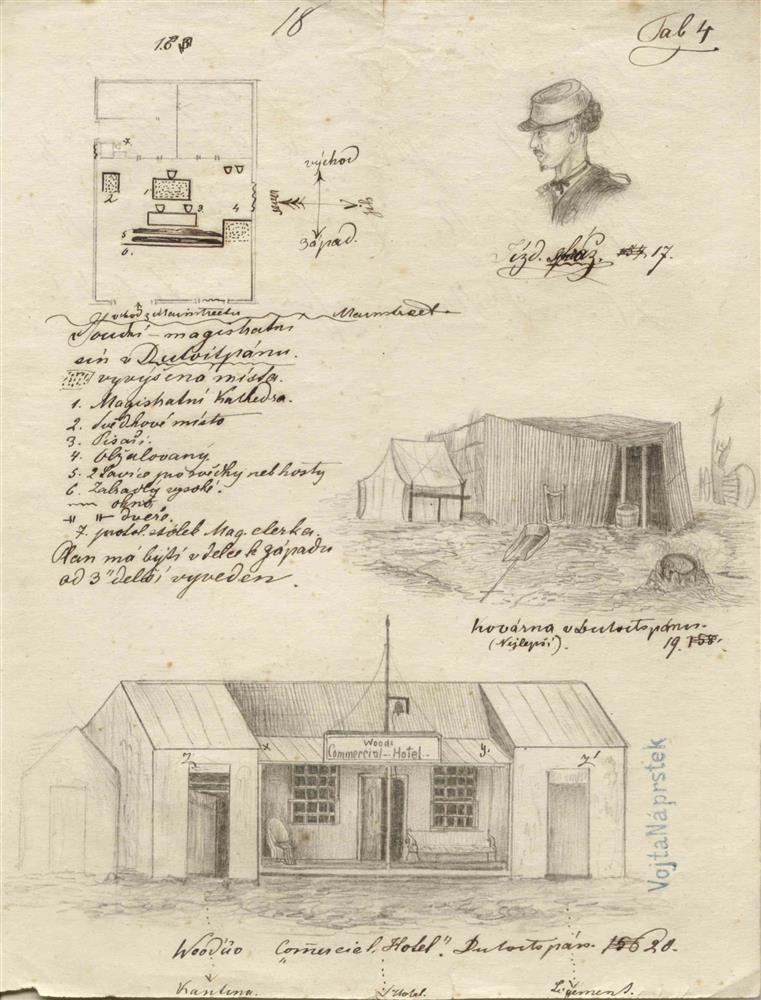 18
Tab 4
východ
sever
jih
západ.
1
2
3.
4
5
6.
7.
Jízd. stráž. 17.
vchod z Mainstreetu
Mainstreet.
Soudní - magistratní
síň v Dutoitspánu.
vyvýšená místa.
1. Magistratní Kathedra.
2. Svědkové místo
3. Pisaři.
4. Obžalovaný.
5. 2 Lavice pro svědky neb hosty
6. Zabradlý vysoké.
okno,
dveře.
7. stolek Mag. clerka.
Plan má býti v délce k západu
od 3" delší vyveden.
kovárna v Dutoitspánu.
(Nejlepší). 19. 158.
Woods
Commercial - Hotel -
x
y.
7.
7!
VojtaNáprstek
Woodův "Commercial. Hotel". Dutoitspán. 156 20.
Kantina.
Hotel.